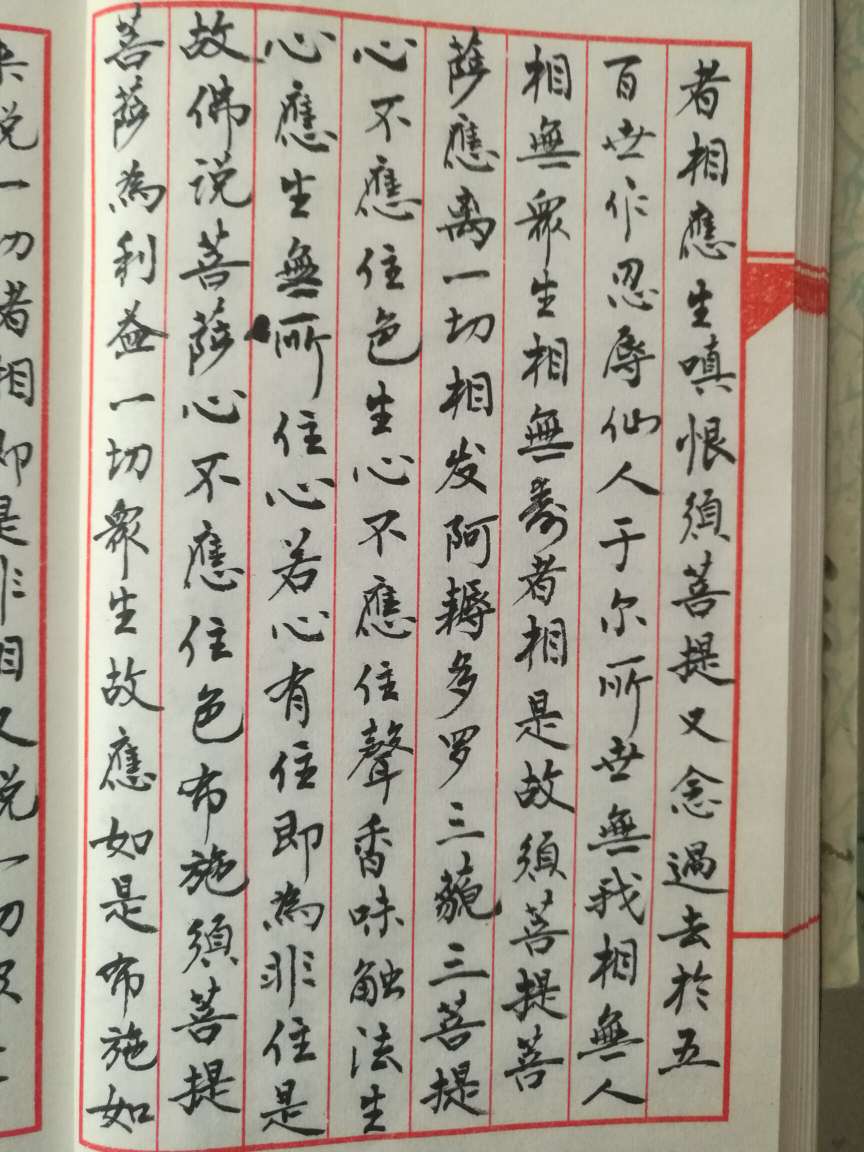 者相應生嗔恨須菩提又念過去於五
百世作忍辱仙人于尔所世無我相無人
相無衆生相無壽者相是故須菩提菩
薩應离一切相发阿耨多罗三藐三菩提
心不應住色生心不應住聲香味触法生
心應生無所住心若心有住即為非住是
故佛说菩薩心不應住色布施須菩提
菩薩為利益一切衆生故應如是布施如
来说一切者相即是非相又说一切衆